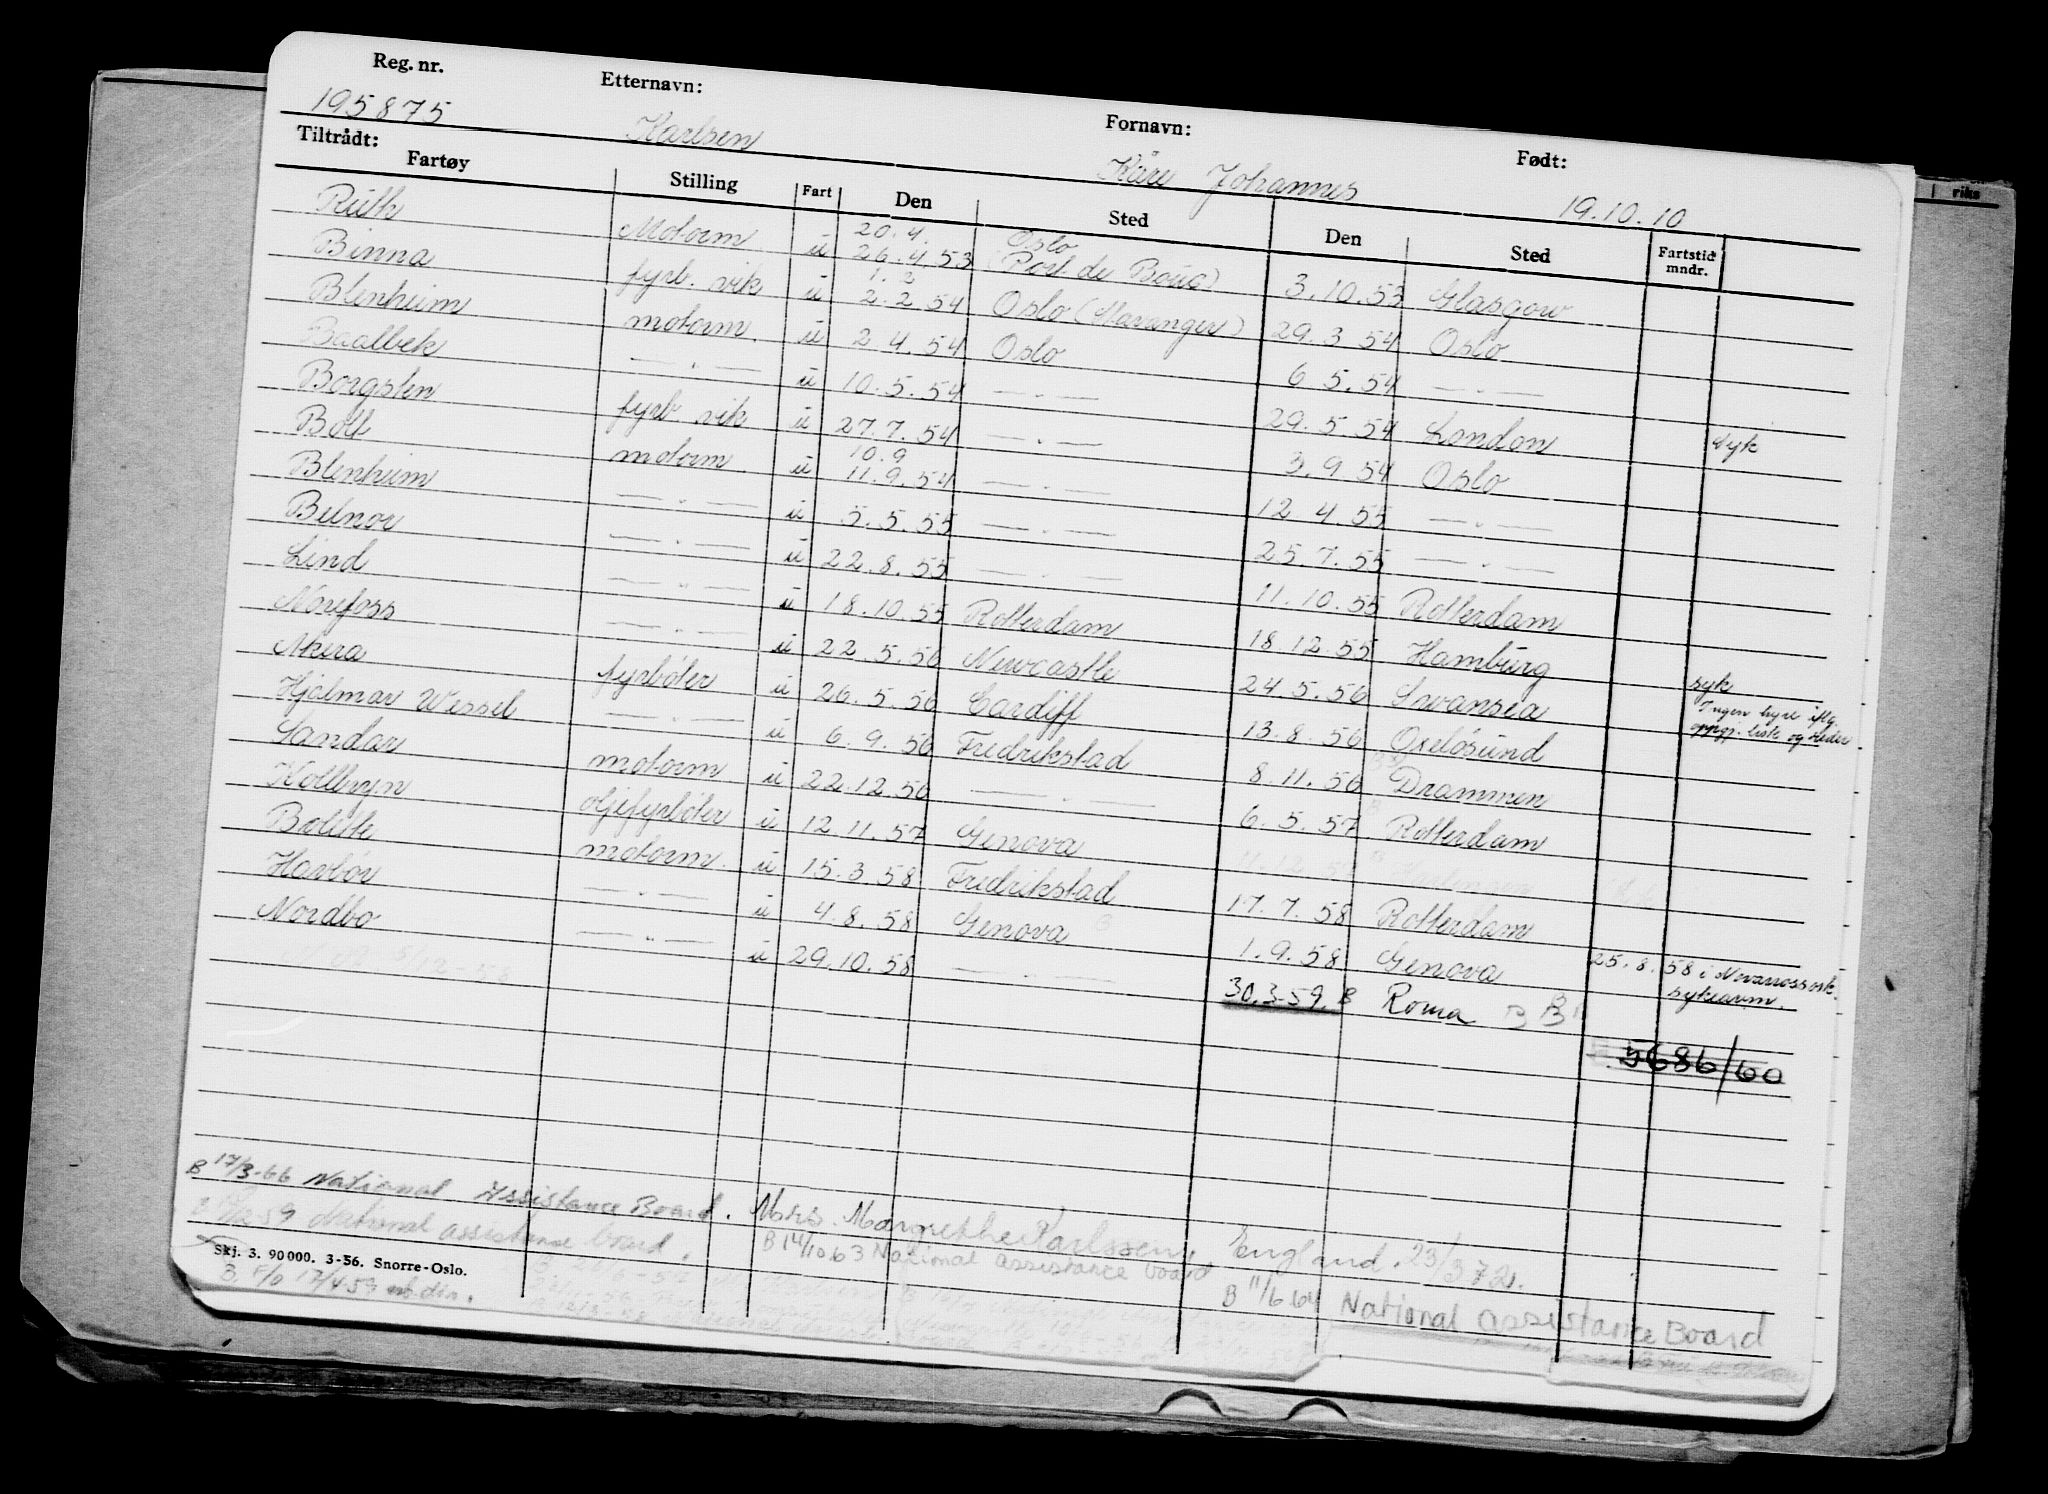 Reg. nr. Etternavn: Fornavn: Født:
195875 Karlsen Kåre Johannes 19.10.10
Tiltrådt:
Fartøy Stilling Fart Den Sted Den Sted Fartstid mndr.
Ruth Motorm u 20.4. 26.4.53 Oslo (Port de Bouc) 3.10.53 Glasgow
Binna fyrb. vik u 1.2 2.2.54 Oslo (Stavanger) 29.3.54 Oslo
Blenheim motorm. u 2.4.54 Oslo 6.5.54 — " —
Baalbek — " — u 10.5.54 — " — 29.5.54 London syk
Borgsten fyrb vik u 27.7.54 — " — 3.9.54 Oslo
Boll motorm. u 10.9 11.9.54 — " — 12.4.55 — " —
Blenheim — " — u 5.5.55 — " — 25.7.55 — " —
Belnor — " — u 22.8.55 — " — 11.10.55 Rotterdam
Lind — " — u 18.10.55 Rotterdam 18.12.55 Hamburg
Norefoss — " — u 22.5.56 Newcastle 24.5.56 Swansea syk
Akera fyrbøter u 26.5.56 Cardiff 13.8.56 Oxelösund Ingen hyre iflg. oppgj. liste og Reder
Hjalmar Wessel — " — u 6.9.56 Fredrikstad 8.11.56 Drammen
Sandar motorm u 22.12.56 — " — 6.5.57 Rotterdam
Kollbryn oljefyrbøter u 12.11.57 Genova 11.12.57
Bolette motorm. u 15.3.58 Fredrikstad 17.7.58 Rotterdam
Havbør — " — u 4.8.58 Genova 1.9.58 Genova 25.8.58 i Novarossisk. sykearm.
Nordbo — " — u 29.10.58 — " — 30.3-59. B Roma B B
5/12-58
5686/60
B 17/3-66 National Assistance Board. Mrs. Margrethe Karlssen, England. 23/3 72.
12-59 National assistance board. B 14/10 63 National assistance board
B 11/6 64 National assistance Board
Skj. 3. 90 000. 3-56. Snorre-Oslo.
B. F/O 17/4 59